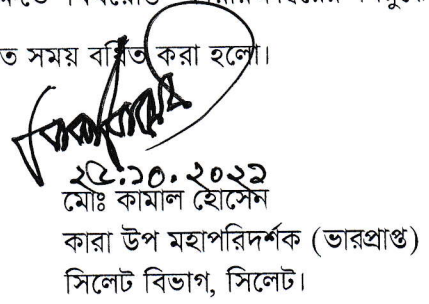 ত সময় বর্ধিত করা হলো।
২৫.১০.২০২১
মোঃ কামাল হোসেন
কারা উপ মহাপরিদর্শক (ভারপ্রাপ্ত)
সিলেট বিভাগ, সিলেট।